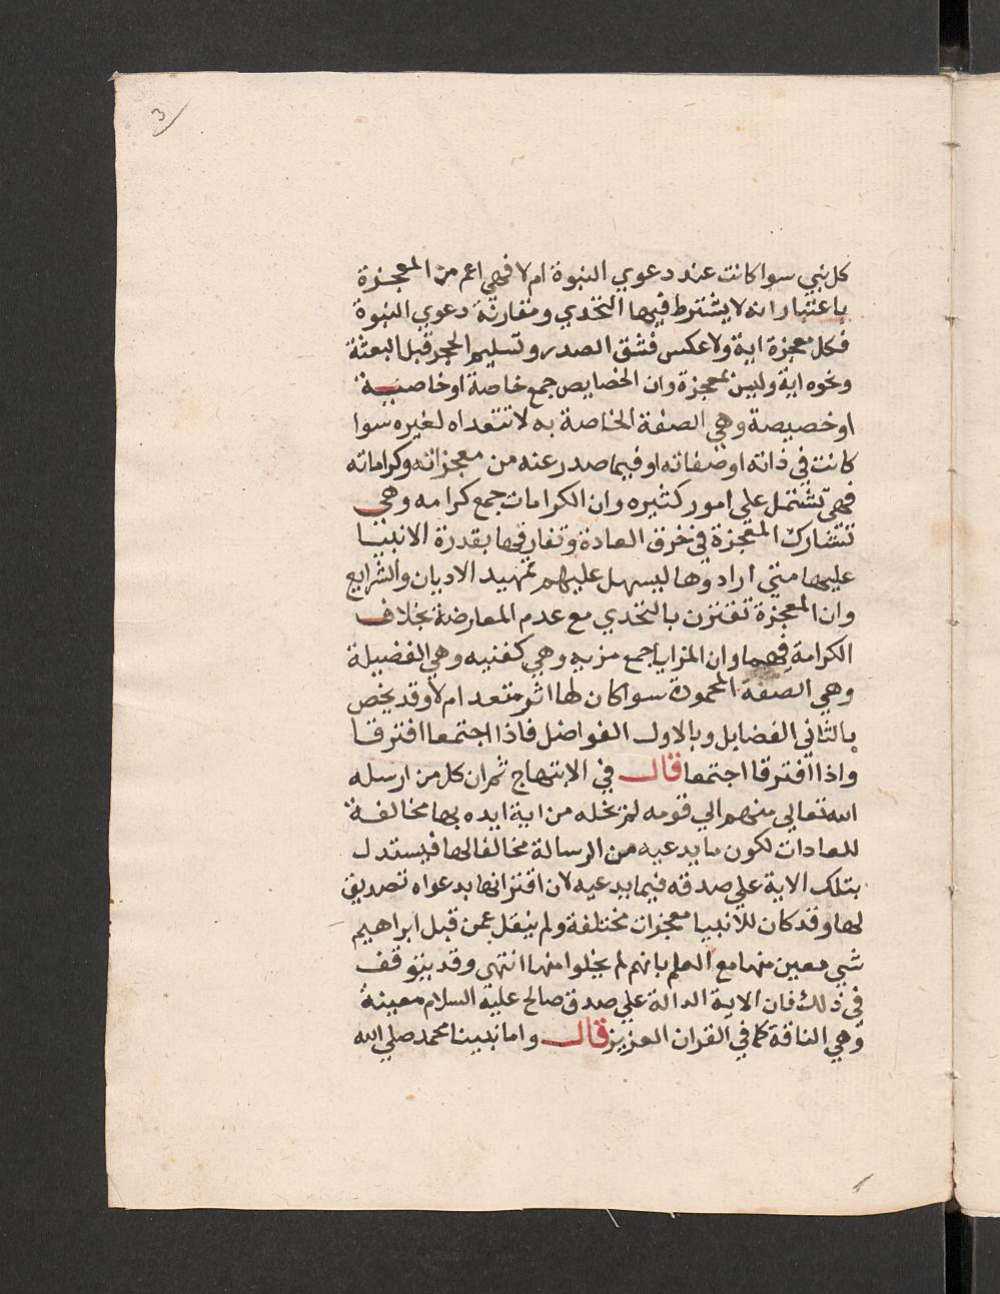 3
كل نبي سوا كانت عند دعوي النبوة ام لا فهي اعم من المعجزة
باعتبار انه لا يشترط فيها التحدي ومقارنة دعوي النبوة
فكل معجزة اية ولا عكس فشق الصدر وتسليم الحجر قبل البعثة
ونحوه اية وليس بمعجزة وان الخصايص جمع خاصة او خاصية
او خصيصة وهي الصفة الخاصة به لا تتعداه لغيره سوا
كانت في ذاته او صفاته او فيما صدر عنه من معجزاته وكراماته
فهي تشتمل علي امور كثيره وان الكرامات جمع كرامه وهي
تتشارك المعجزة في خرق العادة وتفارقها بقدرة الانبيا
عليها متي ارادوها ليسهل عليهم تمهيد الاديان والشرايع
وان المعجزة تقترن بالتحدي مع عدم المعارضة بخلاف
الكرامة فيهما وان المزايا جمع مزيه وهي كغنيه وهي الفضيلة
وهي الصفة المحمودة سوا كان لها اثر متعد ام لا وقد يخص
بالثاني الفضايل وبالاول الفواضل فاذا اجتمعا افترقا
واذا افترقا اجتمعا قال في الابتهاج ثم ان كل من ارسله
الله تعالي منهم الي قومه لم يخله من اية ايده بها مخالفة
للعادات لكون ما يدعيه من الرسالة مخالفا لها فيستدل
بتلك الاية علي صدقه فيما يدعيه لان اقترانها بدعواه تصديق
لها وقد كان للانبيا معجزات مختلفة ولم ينقل عمن قبل ابراهيم
شي معين منها مع العلم بانهم لم يخلوا منها انتهي وقد يتوقف
في ذلك فان الاية الدالة علي صدق صالح عليه السلام معينة
وهي الناقة كما في القران العزيز قال واما نبينا محمد صلي الله